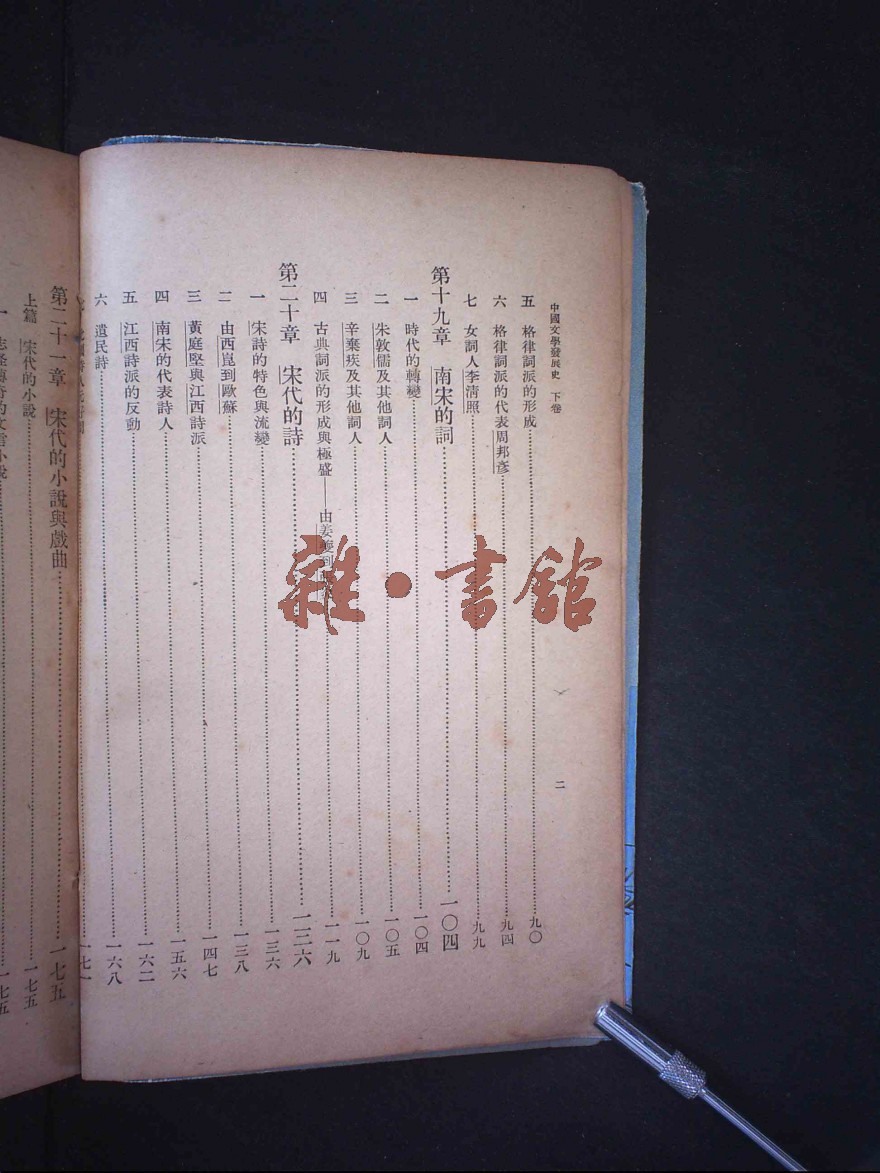 中國文學發展史 下卷
二
五 格律詞派的形成……九〇
六 格律詞派的代表周邦彥……九四
七 女詞人李清照……九九
第十九章 南宋的詞……一〇四
一 時代的轉變……一〇四
二 朱敦儒及其他詞人……一〇五
三 辛棄疾及其他詞人……一〇九
四 古典詞派的形成與極盛——由姜夔到……一一九
第二十章 宋代的詩……一三六
一 宋詩的特色與流變……一三六
二 由西崑到歐蘇……一三八
三 黃庭堅與江西詩派……一四七
四 南宋的代表詩人……一五六
五 江西詩派的反動……一六二
六 遺民詩……一六八
一七一
第二十一章 宋代的小說與戲曲……一七五
上篇 宋代的小說……一七五
一 志怪傳奇的文言小說……一七五
雜·書館